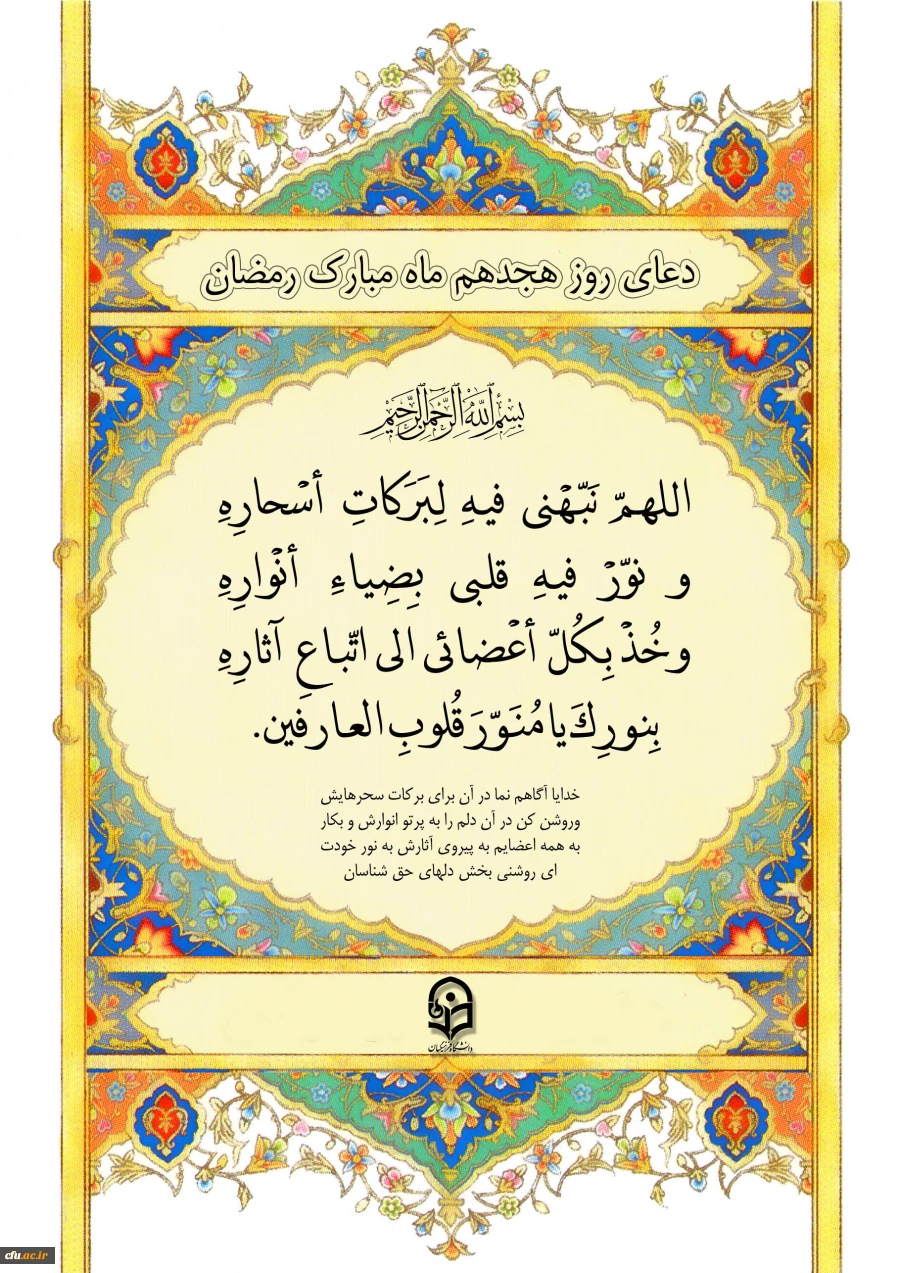 دعای روز هجدهم ماه مبارک رمضان
بِسْمِ ٱللَّهِ ٱلرَّحْمَٰنِ ٱلرَّحِيمِ
اللهمّ نَبّهْنی فیهِ لِبَرَکاتِ أسْحارِهِ
و نوّرْ فیهِ قلبی بِضِیاءِ أنْوارِهِ
وخُذْ بِکُلّ أعْضائی الی اتّباعِ آثارِهِ
بِنورِكَ یا مُنَوّرَ قُلوبِ العارفین.
خدایا آگاهم نما در آن برای برکات سحرهایش
وروشن کن در آن دلم را به پرتو انوارش و بکار
به همه اعضایم به پیروی آثارش به نور خودت
ای روشنی بخش دلهای حق شناسان
دانشگاه فرهنگیان
cfu.ac.ir